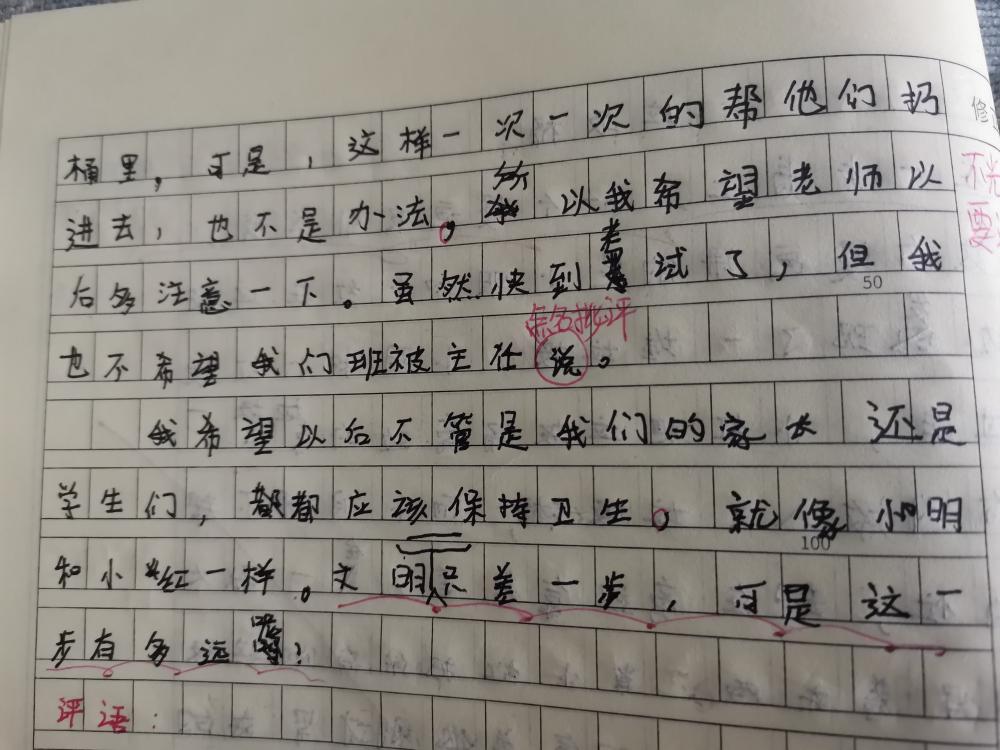 桶里，可是，这样一次一次的帮他们扔
修
进去，也不是办法。所以我希望老师以
不
要
后多注意一下。虽然快到考试了，但我
50
点名批评
也不希望我们班被主任说。
我希望以后不管是我们的家长还是
学生们，都都应该保持卫生。就像小明
100
和小红一样。文明只差一步，可是这一
步有多远啊！
评语：